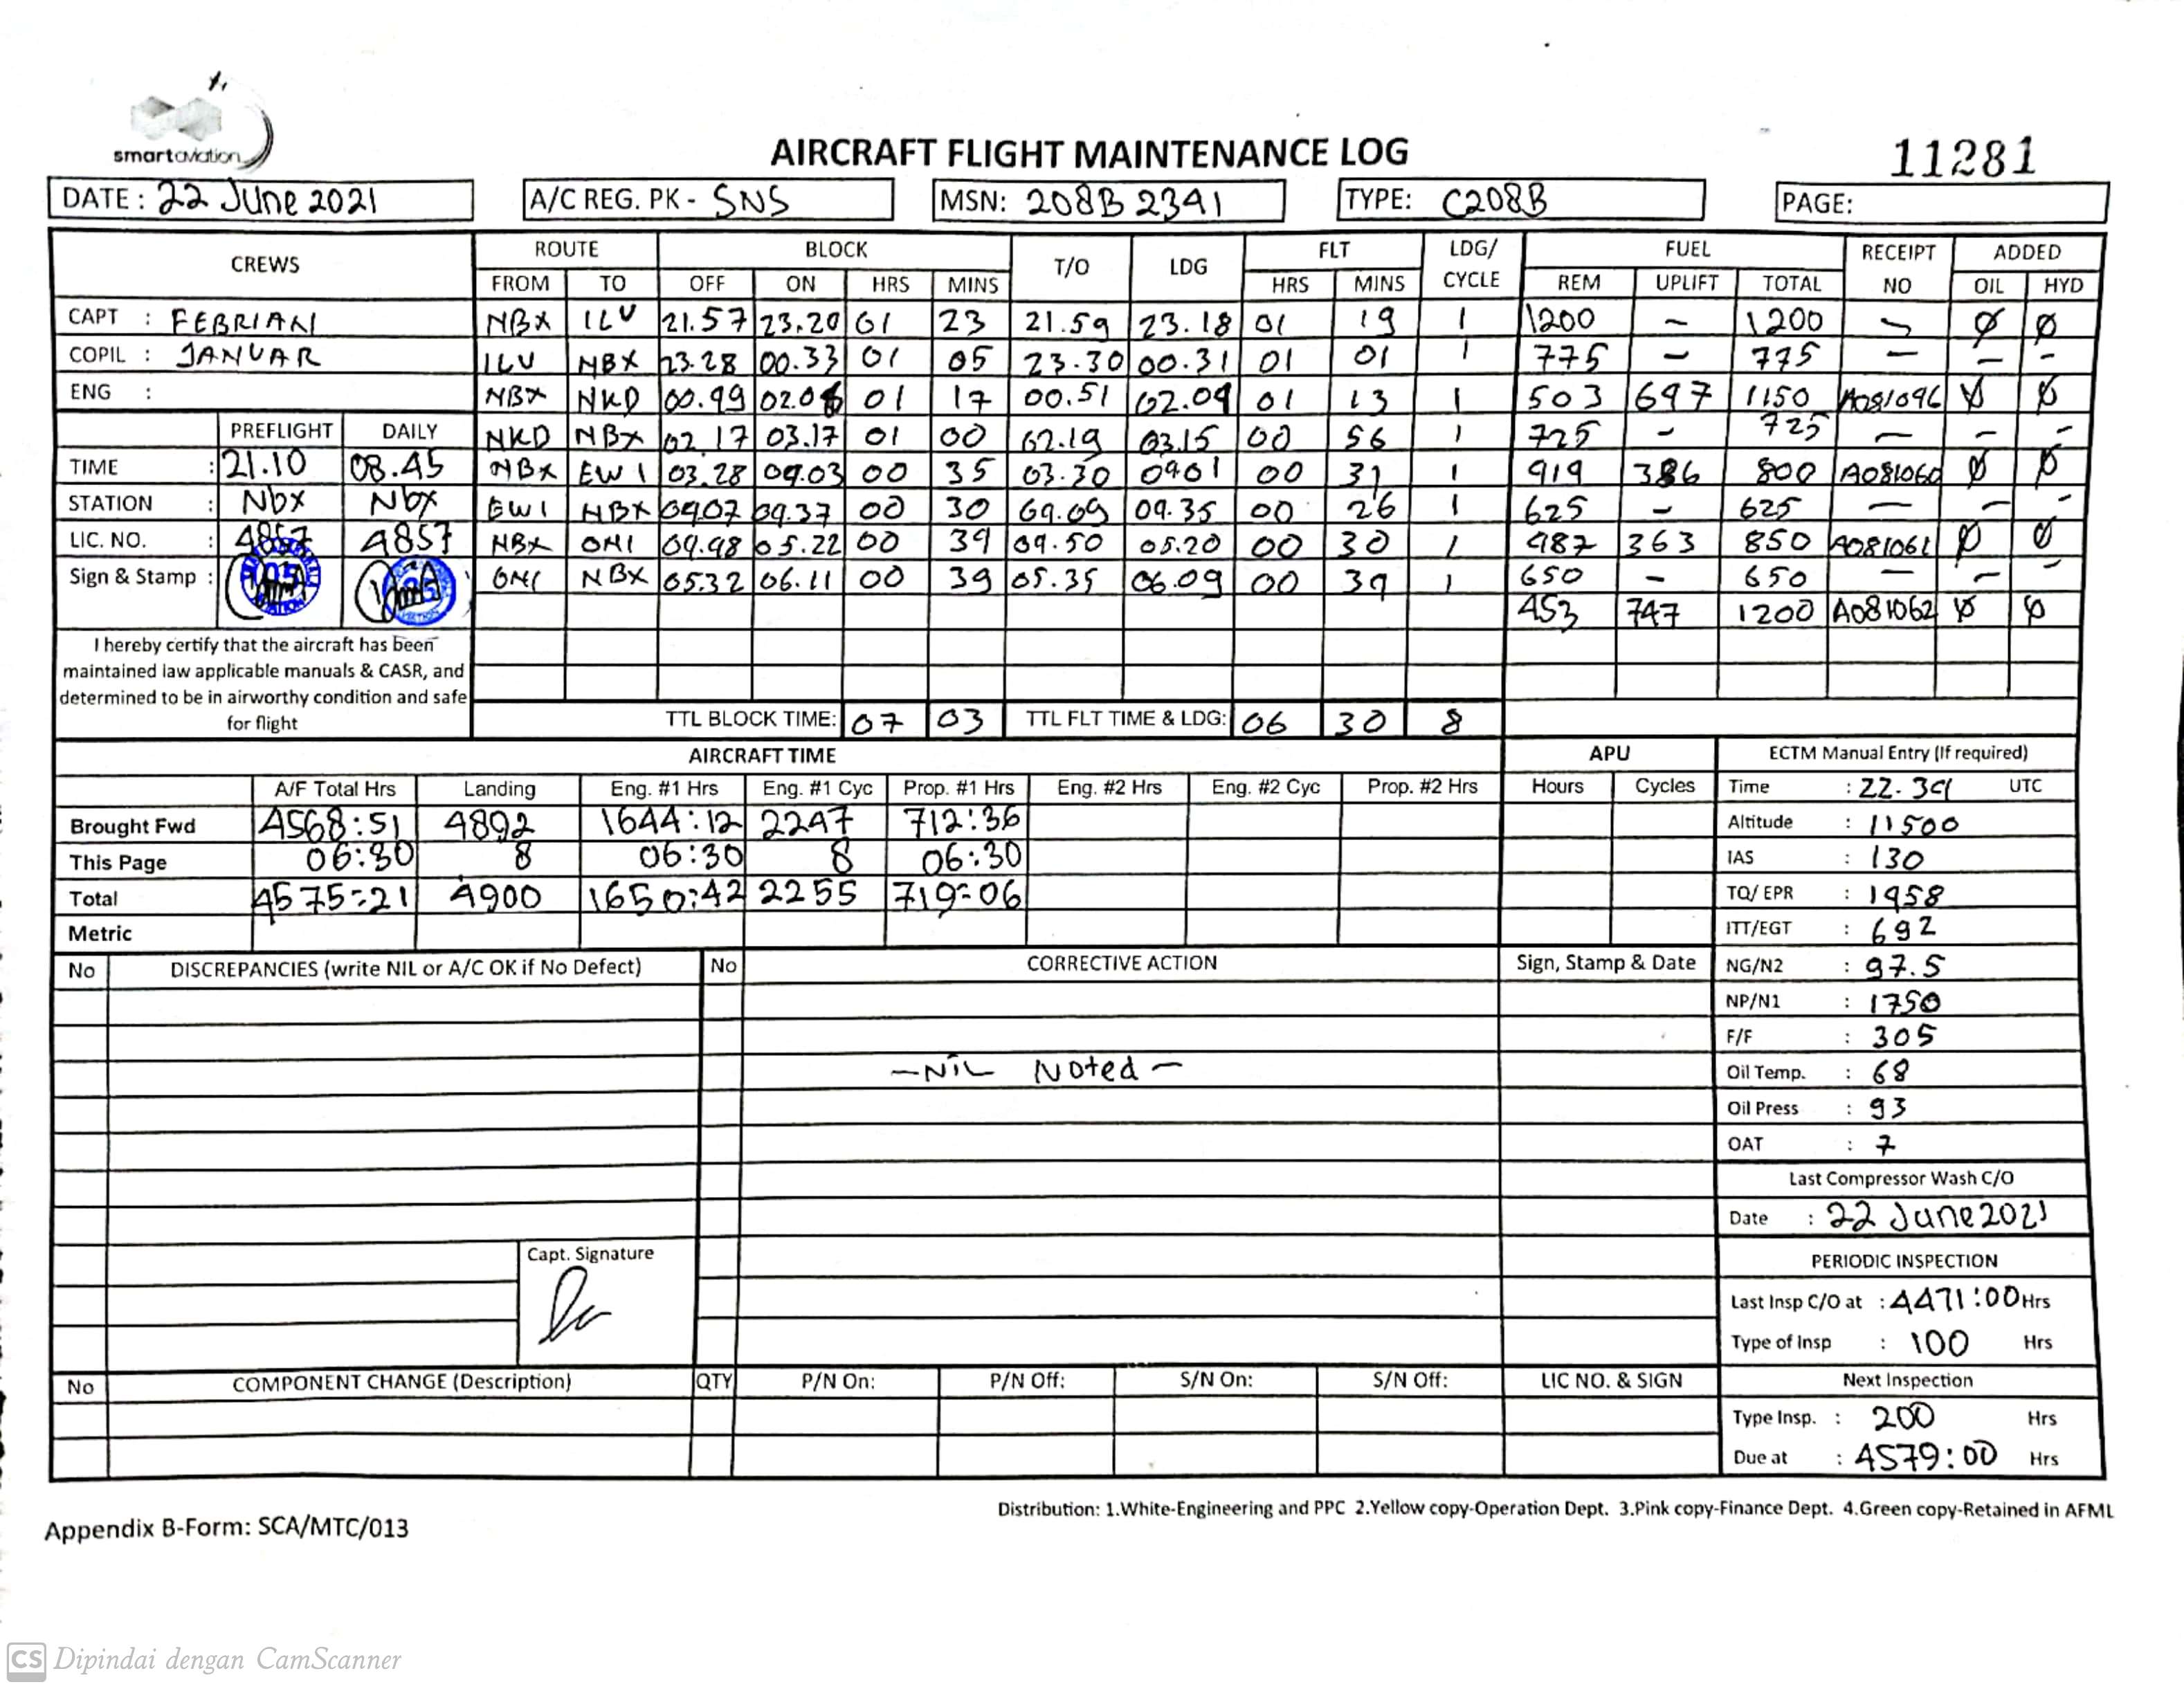 smartaviation
AIRCRAFT FLIGHT MAINTENANCE LOG
11281
DATE : 22 June 2021 A/C REG. PK - SNS MSN: 208B 2341 TYPE: C208B PAGE:
CREWS ROUTE BLOCK T/O LDG FLT LDG/ CYCLE FUEL RECEIPT NO ADDED
FROM TO OFF ON HRS MINS HRS MINS REM UPLIFT TOTAL OIL HYD
CAPT : FEBRIAN NBX ILU 21.57 23.20 01 23 21.59 23.18 01 19 1 1200 – 1200 – Ø Ø
COPIL : JANUAR ILU NBX 23.28 00.33 01 05 23.30 00.31 01 01 1 775 – 775 – – –
ENG : NBX NKD 00.49 02.06 01 17 00.51 02.04 01 13 1 503 697 1150 Ø Ø
NKD NBX 02.17 03.17 01 00 02.19 03.15 00 56 1 725 – 725 – – –
PREFLIGHT DAILY
TIME : 21.10 08.45 NBX EWI 03.28 04.03 00 35 03.30 0401 00 31 1 414 386 800 A081060 Ø Ø
STATION : Nbx Nbx EWI NBX 0407 04.37 00 30 04.09 04.35 00 26 1 625 – 625 – – –
LIC. NO. : 4857 4857 NBX ONI 04.48 05.22 00 34 04.50 05.20 00 30 1 487 363 850 A081061 Ø Ø
Sign & Stamp : ONI NBX 05.32 06.11 00 39 05.35 06.09 00 34 1 650 – 650 – – –
453 747 1200 A081062 Ø Ø
I hereby certify that the aircraft has been
maintained law applicable manuals & CASR, and
determined to be in airworthy condition and safe
for flight
TTL BLOCK TIME: 07 03 TTL FLT TIME & LDG: 06 30 8
AIRCRAFT TIME APU ECTM Manual Entry (If required)
A/F Total Hrs Landing Eng. #1 Hrs Eng. #1 Cyc Prop. #1 Hrs Eng. #2 Hrs Eng. #2 Cyc Prop. #2 Hrs Hours Cycles Time : 22.34 UTC
Brought Fwd 4568:51 4892 1644:12 2247 712:36 Altitude : 11500
This Page 06:30 8 06:30 8 06:30 IAS : 130
Total 4575:21 4900 1650:42 2255 719:06 TQ/ EPR : 1458
Metric ITT/EGT : 692
No DISCREPANCIES (write NIL or A/C OK if No Defect) No CORRECTIVE ACTION Sign, Stamp & Date NG/N2 : 97.5
NP/N1 : 1750
F/F : 305
– NIL Noted –
Oil Temp. : 68
Oil Press : 93
OAT : 7
Last Compressor Wash C/O
Date : 22 June 2021
Capt. Signature
PERIODIC INSPECTION
Last Insp C/O at : 4471:00 Hrs
Type of Insp : 100 Hrs
No COMPONENT CHANGE (Description) QTY P/N On: P/N Off: S/N On: S/N Off: LIC NO. & SIGN Next Inspection
Type Insp. : 200 Hrs
Due at : 4579:00 Hrs
Distribution: 1.White-Engineering and PPC 2.Yellow copy-Operation Dept. 3.Pink copy-Finance Dept. 4.Green copy-Retained in AFML
Appendix B-Form: SCA/MTC/013
CS Dipindai dengan CamScanner